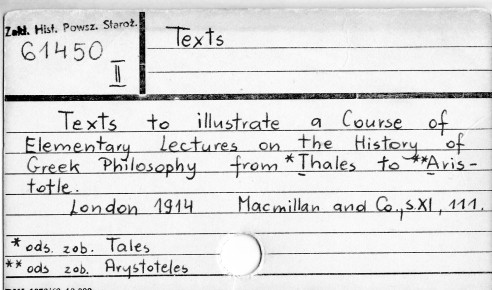 Zakł. Hist. Powsz. Staroż.
61450
II
Texts
Texts to illustrate a Course of
Elementary Lectures on the History of
Greek Philosophy from *Thales to **Aris-
totle.
London 1914 Macmillan and Co., s. XI, 111.
* ods. zob. Tales
** ods zob. Arystoteles